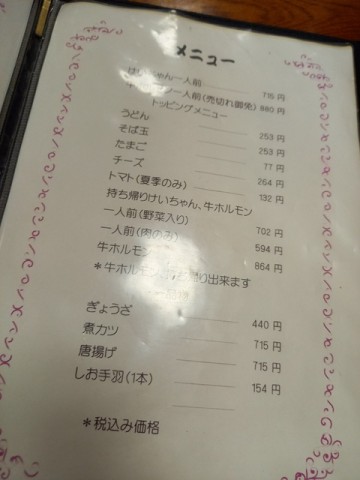 メニュー
けいちゃん一人前 715 円
一人前(売切れ御免) 880 円
トッピングメニュー
うどん 253 円
そば玉 253 円
たまご 77 円
チーズ 264 円
トマト(夏季のみ) 132 円
持ち帰りけいちゃん、牛ホルモン
一人前(野菜入り) 702 円
一人前(肉のみ) 594 円
牛ホルモン 864 円
*牛ホルモン 出来ます
ぎょうざ 440 円
煮カツ 715 円
唐揚げ 715 円
しお手羽(1本) 154 円
*税込み価格